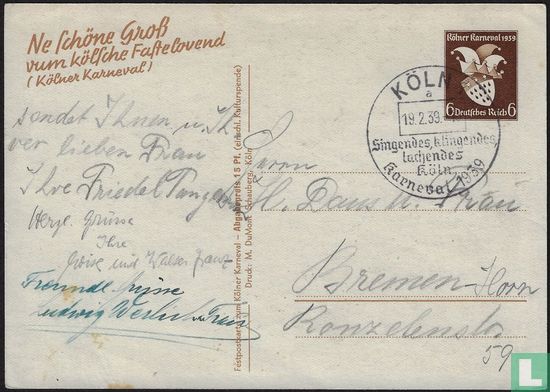 Ne schöne Groß
vum kölsche Fastelovend
(Kölner Karneval)
sendet Ihnen u. Ih
rer lieben Frau
Ihre Friedel
Herzl. Grüsse
Ihre
und
Freundl. Grüsse
Ludwig
Festpostkarte zum Kölner Karneval – Abgabepreis 15 Pf. (einschl. Kulturspende)
Druck: M. DuMont Schauberg, Köln
Kölner Karneval 1939
6 Deutsches Reich 6
KÖLN
a
19.2.39.
Singendes, klingendes
lachendes
Köln
Karneval 1939
Herrn
H. Daus u. Frau
Bremen-Horn
59
LastDodo